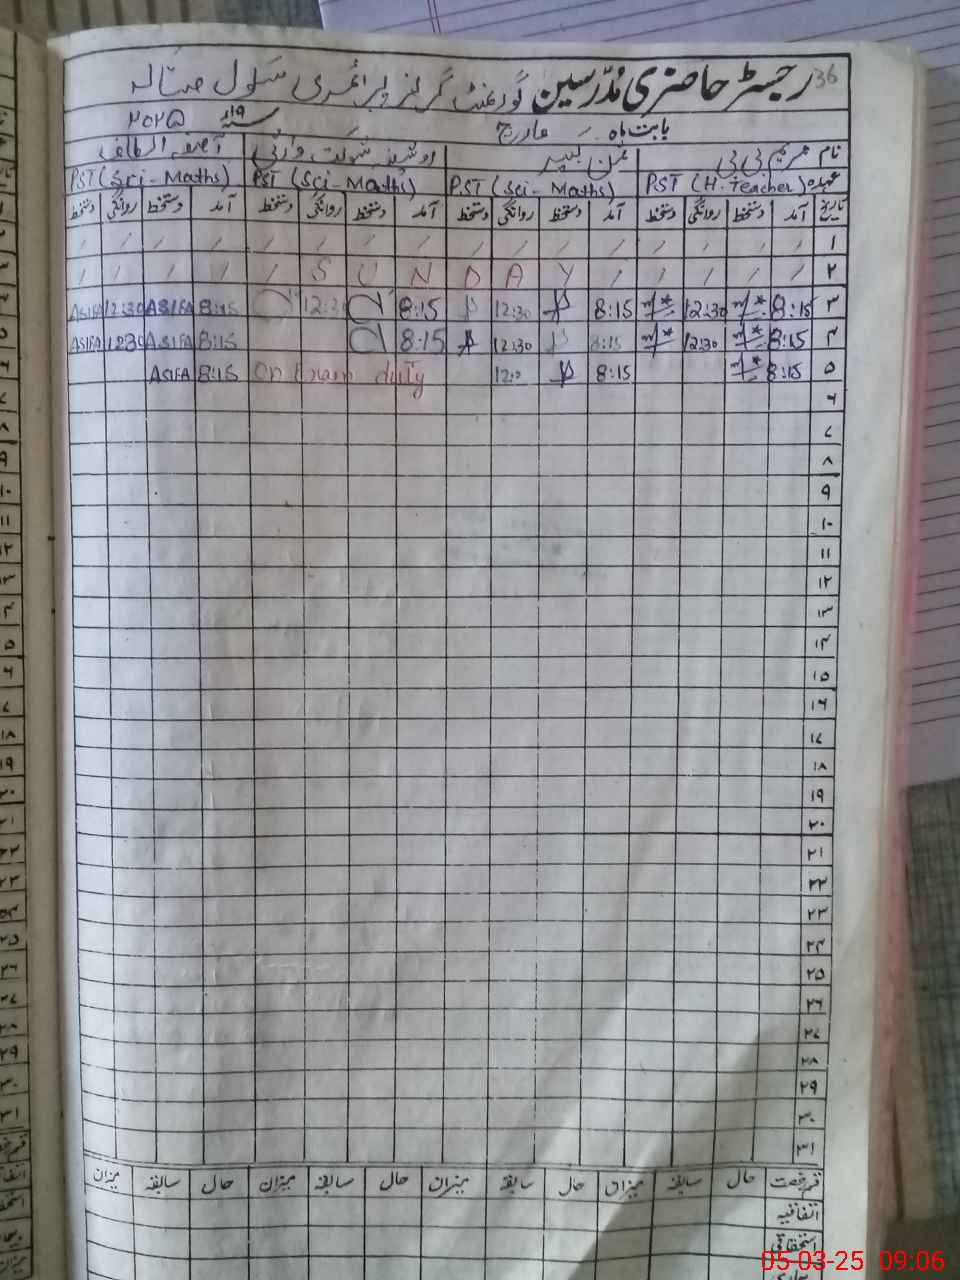 36 رجسٹر حاضری مُدرسین گورنمنٹ گرلز پرائمری سکول
بابت ماہ مارچ سنہ ۱۹ء ۲۰۲۵
نام مریم بی بی روشینہ شوکت وارثی آصفہ الطاف
عہدہ PST (H. Teacher) PST (Sci - Maths) PST (Sci - Maths) PST (Sci - Maths)
تاریخ آمد دستخط روانگی دستخط آمد دستخط روانگی دستخط آمد دستخط روانگی دستخط آمد دستخط روانگی دستخط
۱
۲ S U N D A Y
۳ 8:15 12:30 8:15 12:30 8:15 12:30 8:15 ASIFA 12:30 ASIFA
۴ 8:15 12:30 8:15 12:30 8:15 8:15 ASIFA 1230 ASIFA
۵ 8:15 8:15 12:0 on Exam duty 8:15 ASIFA
۶
۷
۸
۹
۱۰
۱۱
۱۲
۱۳
۱۴
۱۵
۱۶
۱۷
۱۸
۱۹
۲۰
۲۱
۲۲
۲۳
۲۴
۲۵
۲۶
۲۷
۲۸
۲۹
۳۰
۳۱
قسم رخصت حال سابقہ میزان حال سابقہ میزان حال سابقہ میزان حال سابقہ میزان
اتفاقیہ
استحقاقی
05-03-25 09:06